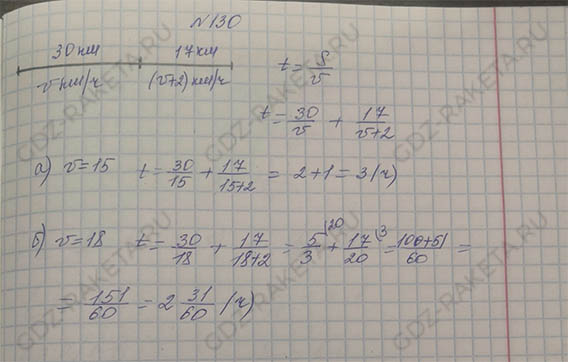 №130
30 км 17 км
v км/ч (v+2) км/ч
t = S/v
t = 30/v + 17/(v+2)
а) v=15 t = 30/15 + 17/(15+2) = 2+1 = 3 (ч)
б) v=18 t = 30/18 + 17/(18+2) = 5/3 (20 + 17/20 (3 = (100+51)/60 =
= 151/60 = 2 31/60 (ч)
GDZ-RAKETA.RU